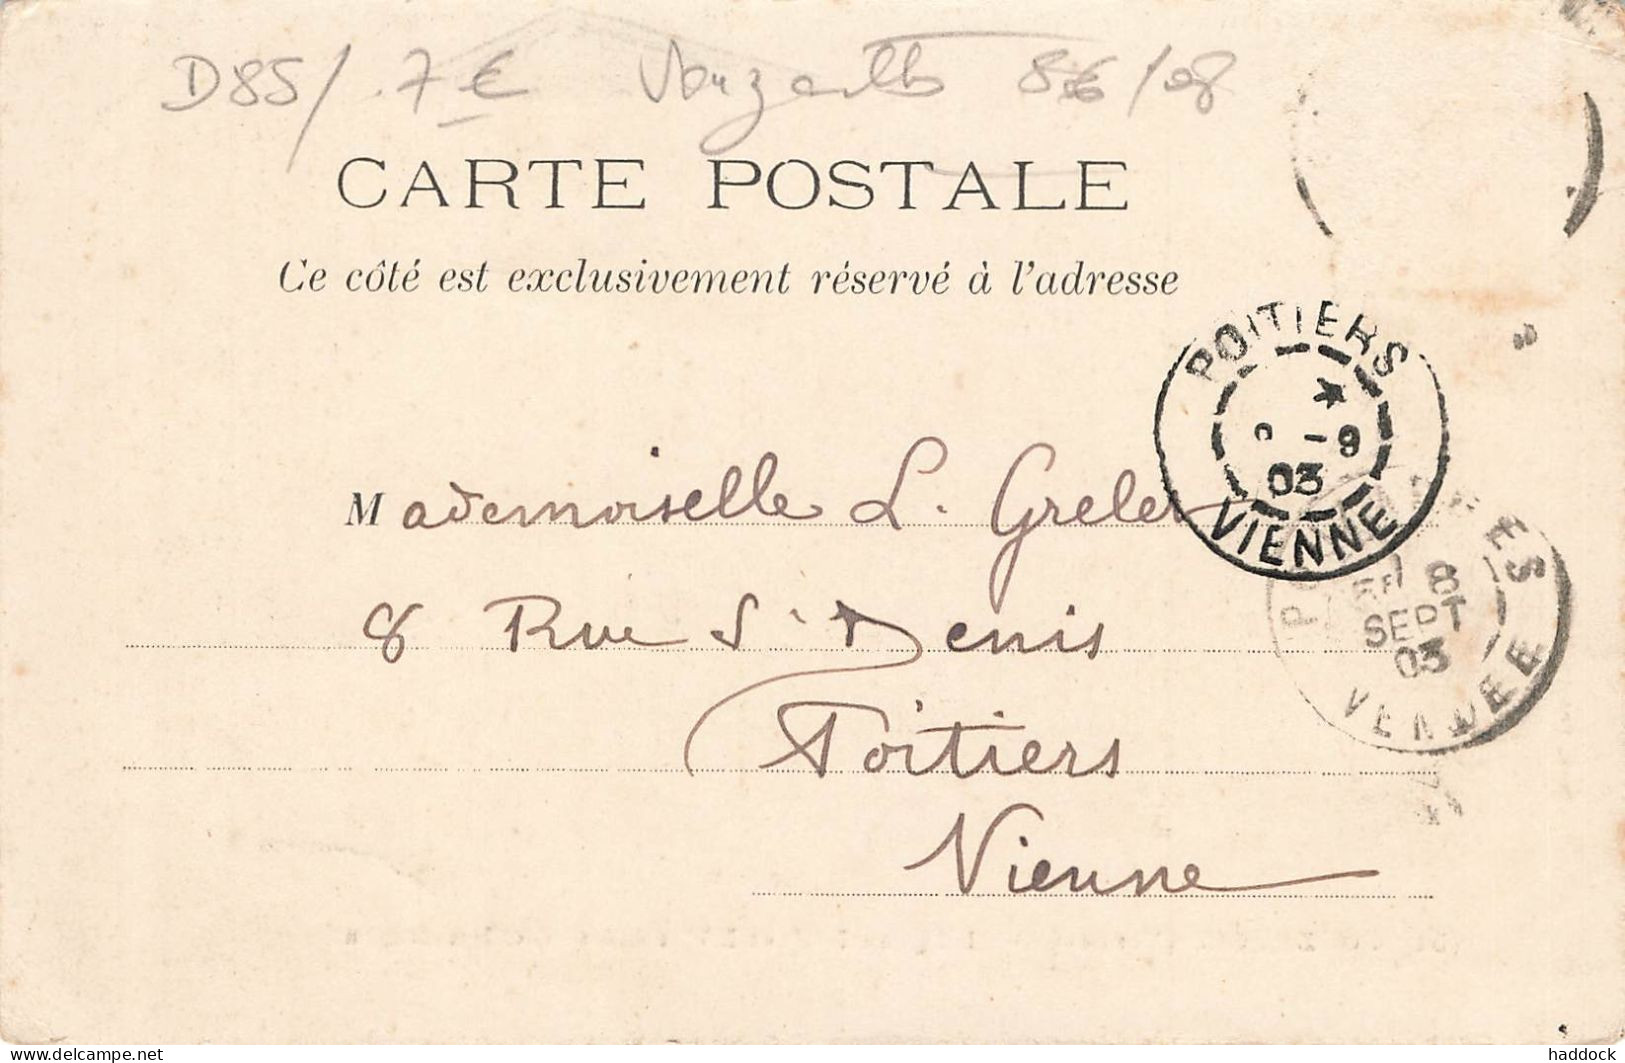 D85/ 7€ 8€/08
CARTE POSTALE
Ce côté est exclusivement réservé à l'adresse
POITIERS
-9
03
VIENNE
Mademoiselle L. Grelet
8 Rue St Denis
Poitiers
Vienne
8
SEPT
03
VENDEE
haddock